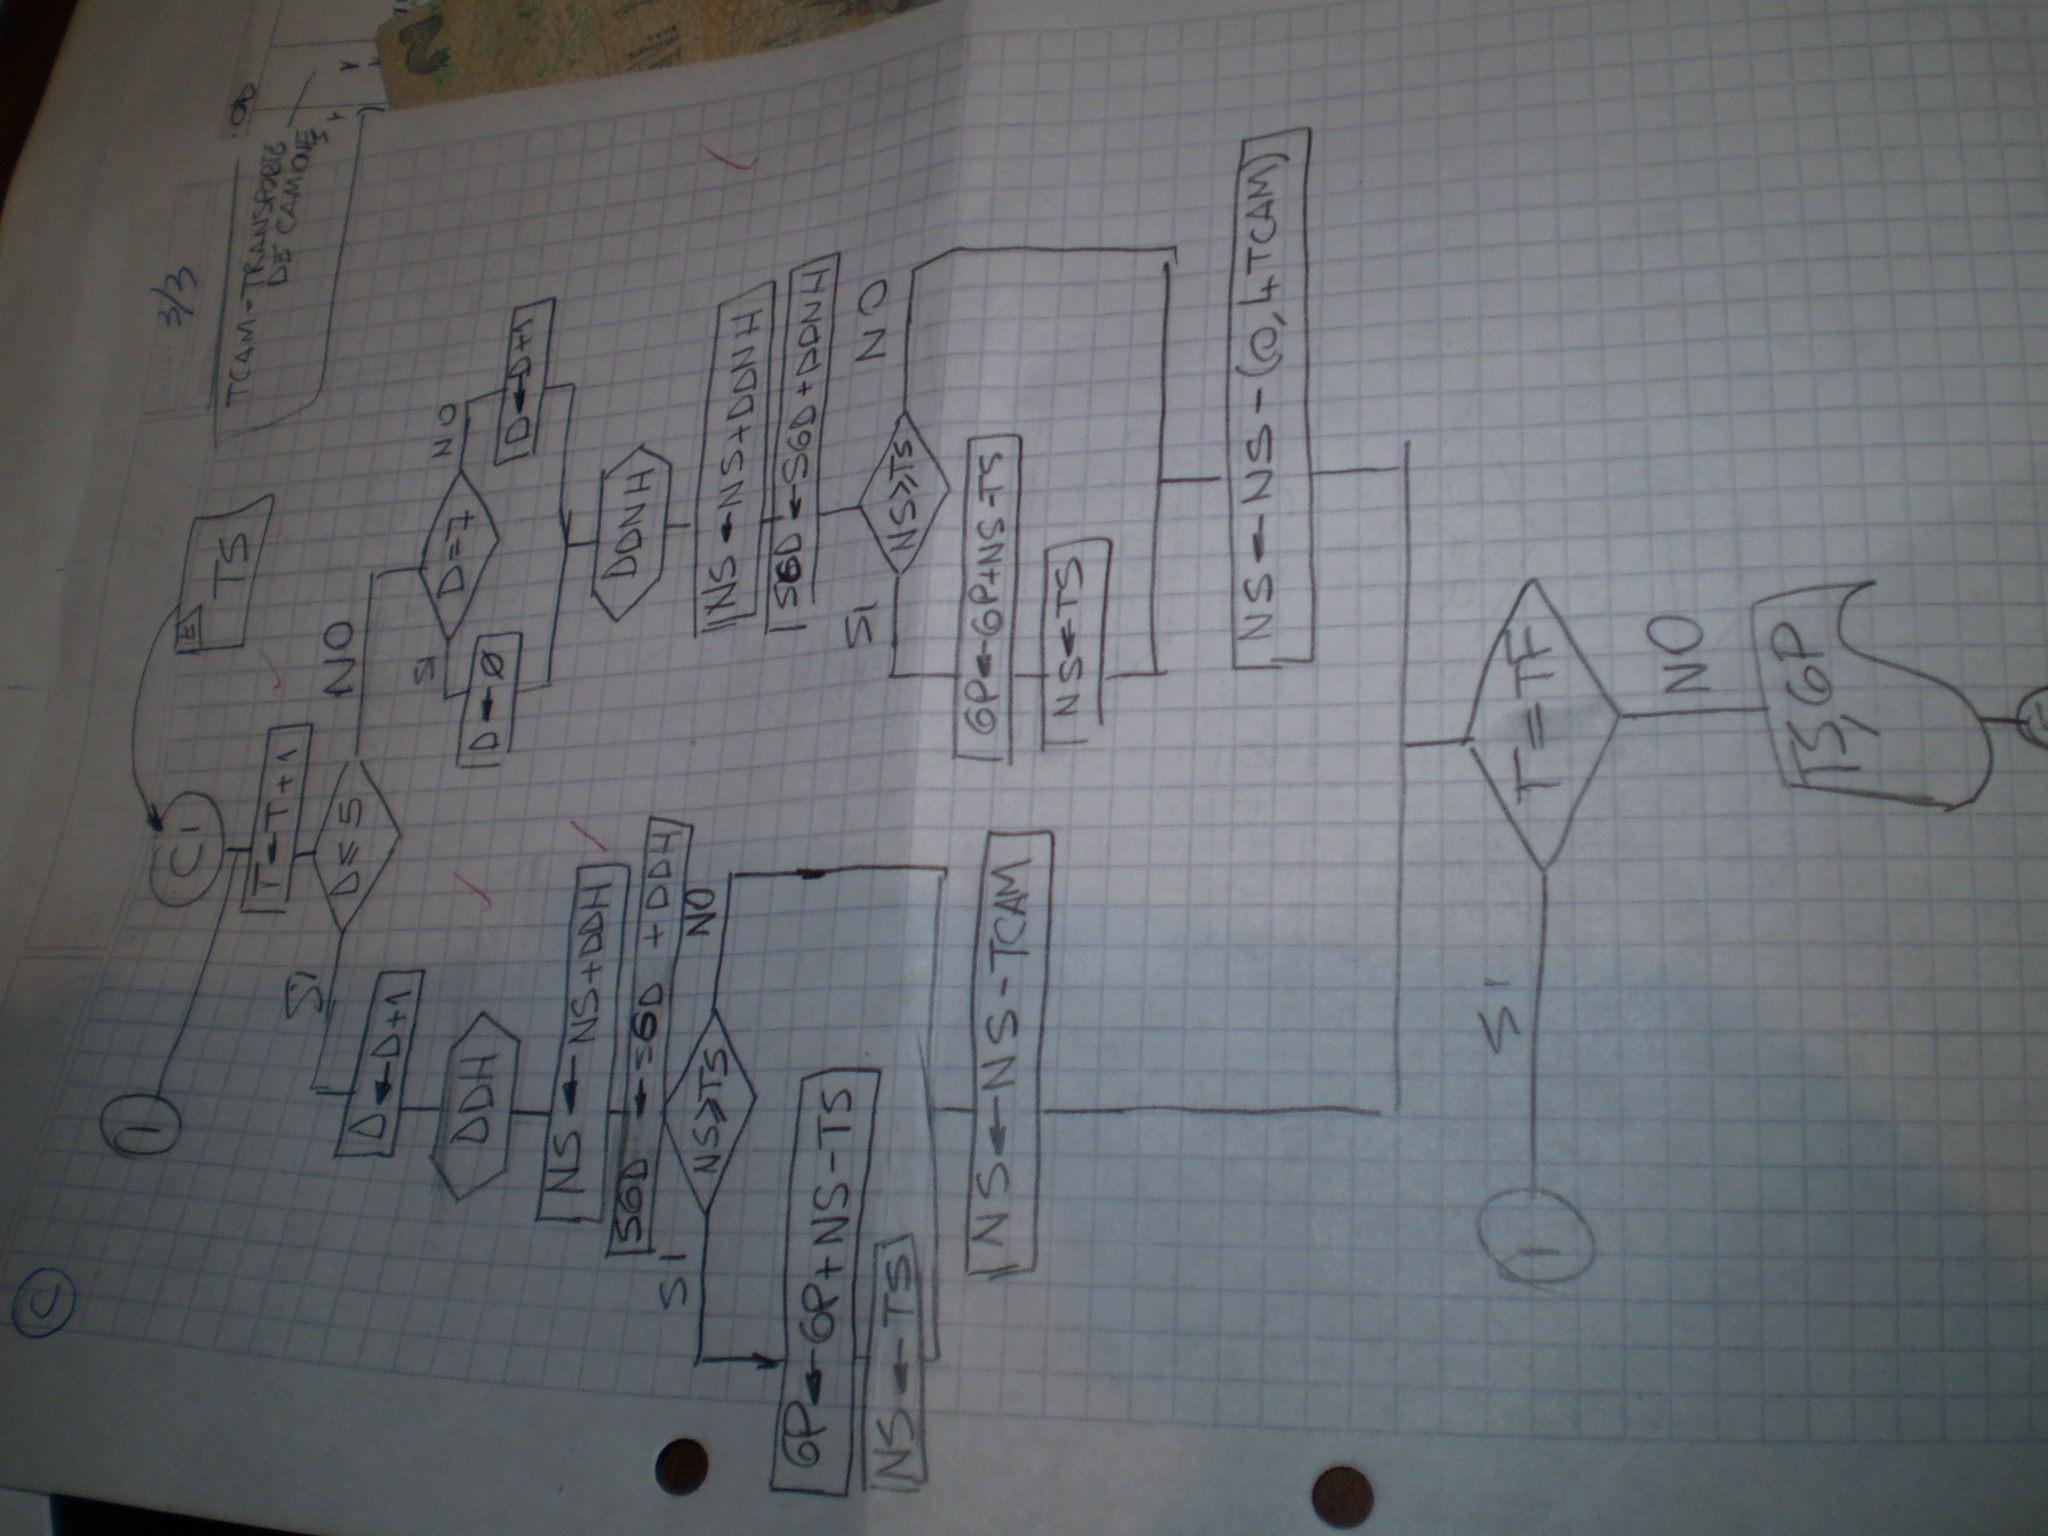 C
3/3
TCAM-TRANSPORTE
DE CAMIONES
E TS
1
C.I
T←T+1
D≤5
SI
NO
D←D+1
DDH
NS←NS+DDH
SGD←SGD+DDH
NS≥TS
SI
NO
GP←GP+NS-TS
NS←TS
NS←NS-TCAM
D=7
SI
NO
D←Ø
D←D+1
DDNH
NS←NS+DDNH
SGD←SGD+DDNH
NS≥TS
SI
NO
GP←GP+NS-TS
NS←TS
NS←NS-(0,4TCAM)
T=TF
SI
NO
1
TS, GP
2